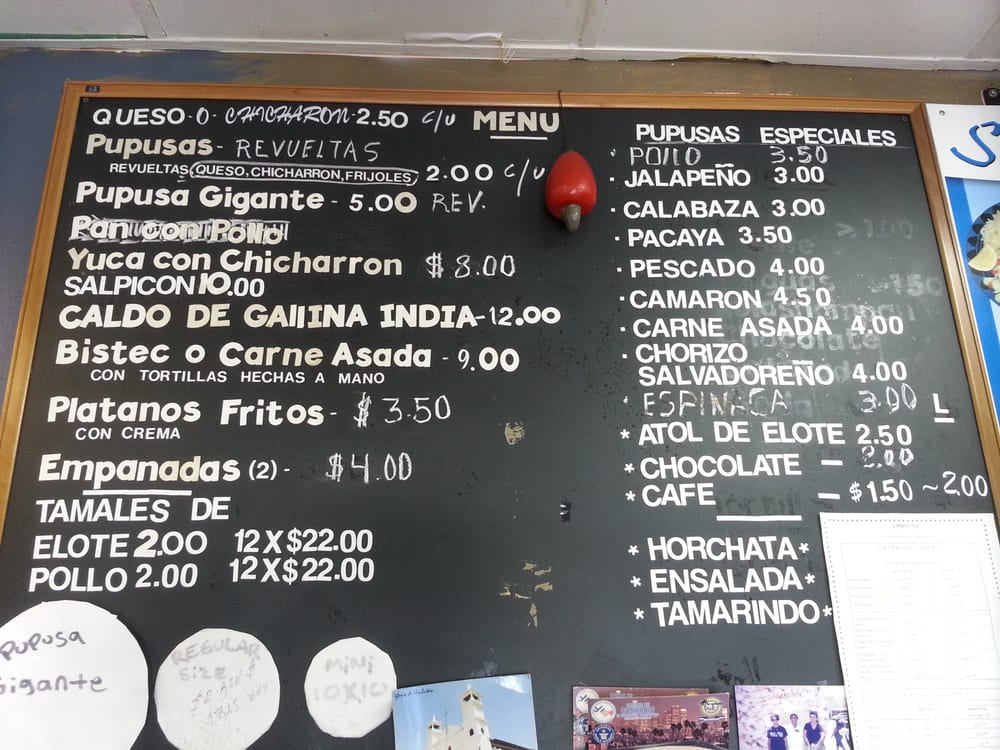 QUESO-O-CHICHARON-2.50 C/U
MENU
Pupusas- REVUELTAS
REVUELTAS(QUESO,CHICHARRON,FRIJOLES) 2.00 C/U
Pupusa Gigante - 5.00 REV.
Pan con Pollo
Yuca con Chicharron $8.00
SALPICON 10.00
CALDO DE GALLINA INDIA-12.00
Bistec o Carne Asada - 9.00
CON TORTILLAS HECHAS A MANO
Platanos Fritos- $3.50
CON CREMA
Empanadas (2) - $4.00
TAMALES DE
ELOTE 2.00 12X$22.00
POLLO 2.00 12X$22.00
PUPUSAS ESPECIALES
· POLLO 3.50
· JALAPEÑO 3.00
· CALABAZA 3.00
· PACAYA 3.50
· PESCADO 4.00
· CAMARON 4.50
· CARNE ASADA 4.00
· CHORIZO
SALVADOREÑO 4.00
· ESPINACA 3.00 L
* ATOL DE ELOTE 2.50
* CHOCOLATE - 2.00
* CAFE - $1.50 ~ 2.00
* HORCHATA*
* ENSALADA*
* TAMARINDO*
PUPUSA
Gigante
REGULAR
SIZE
MINI
10X10